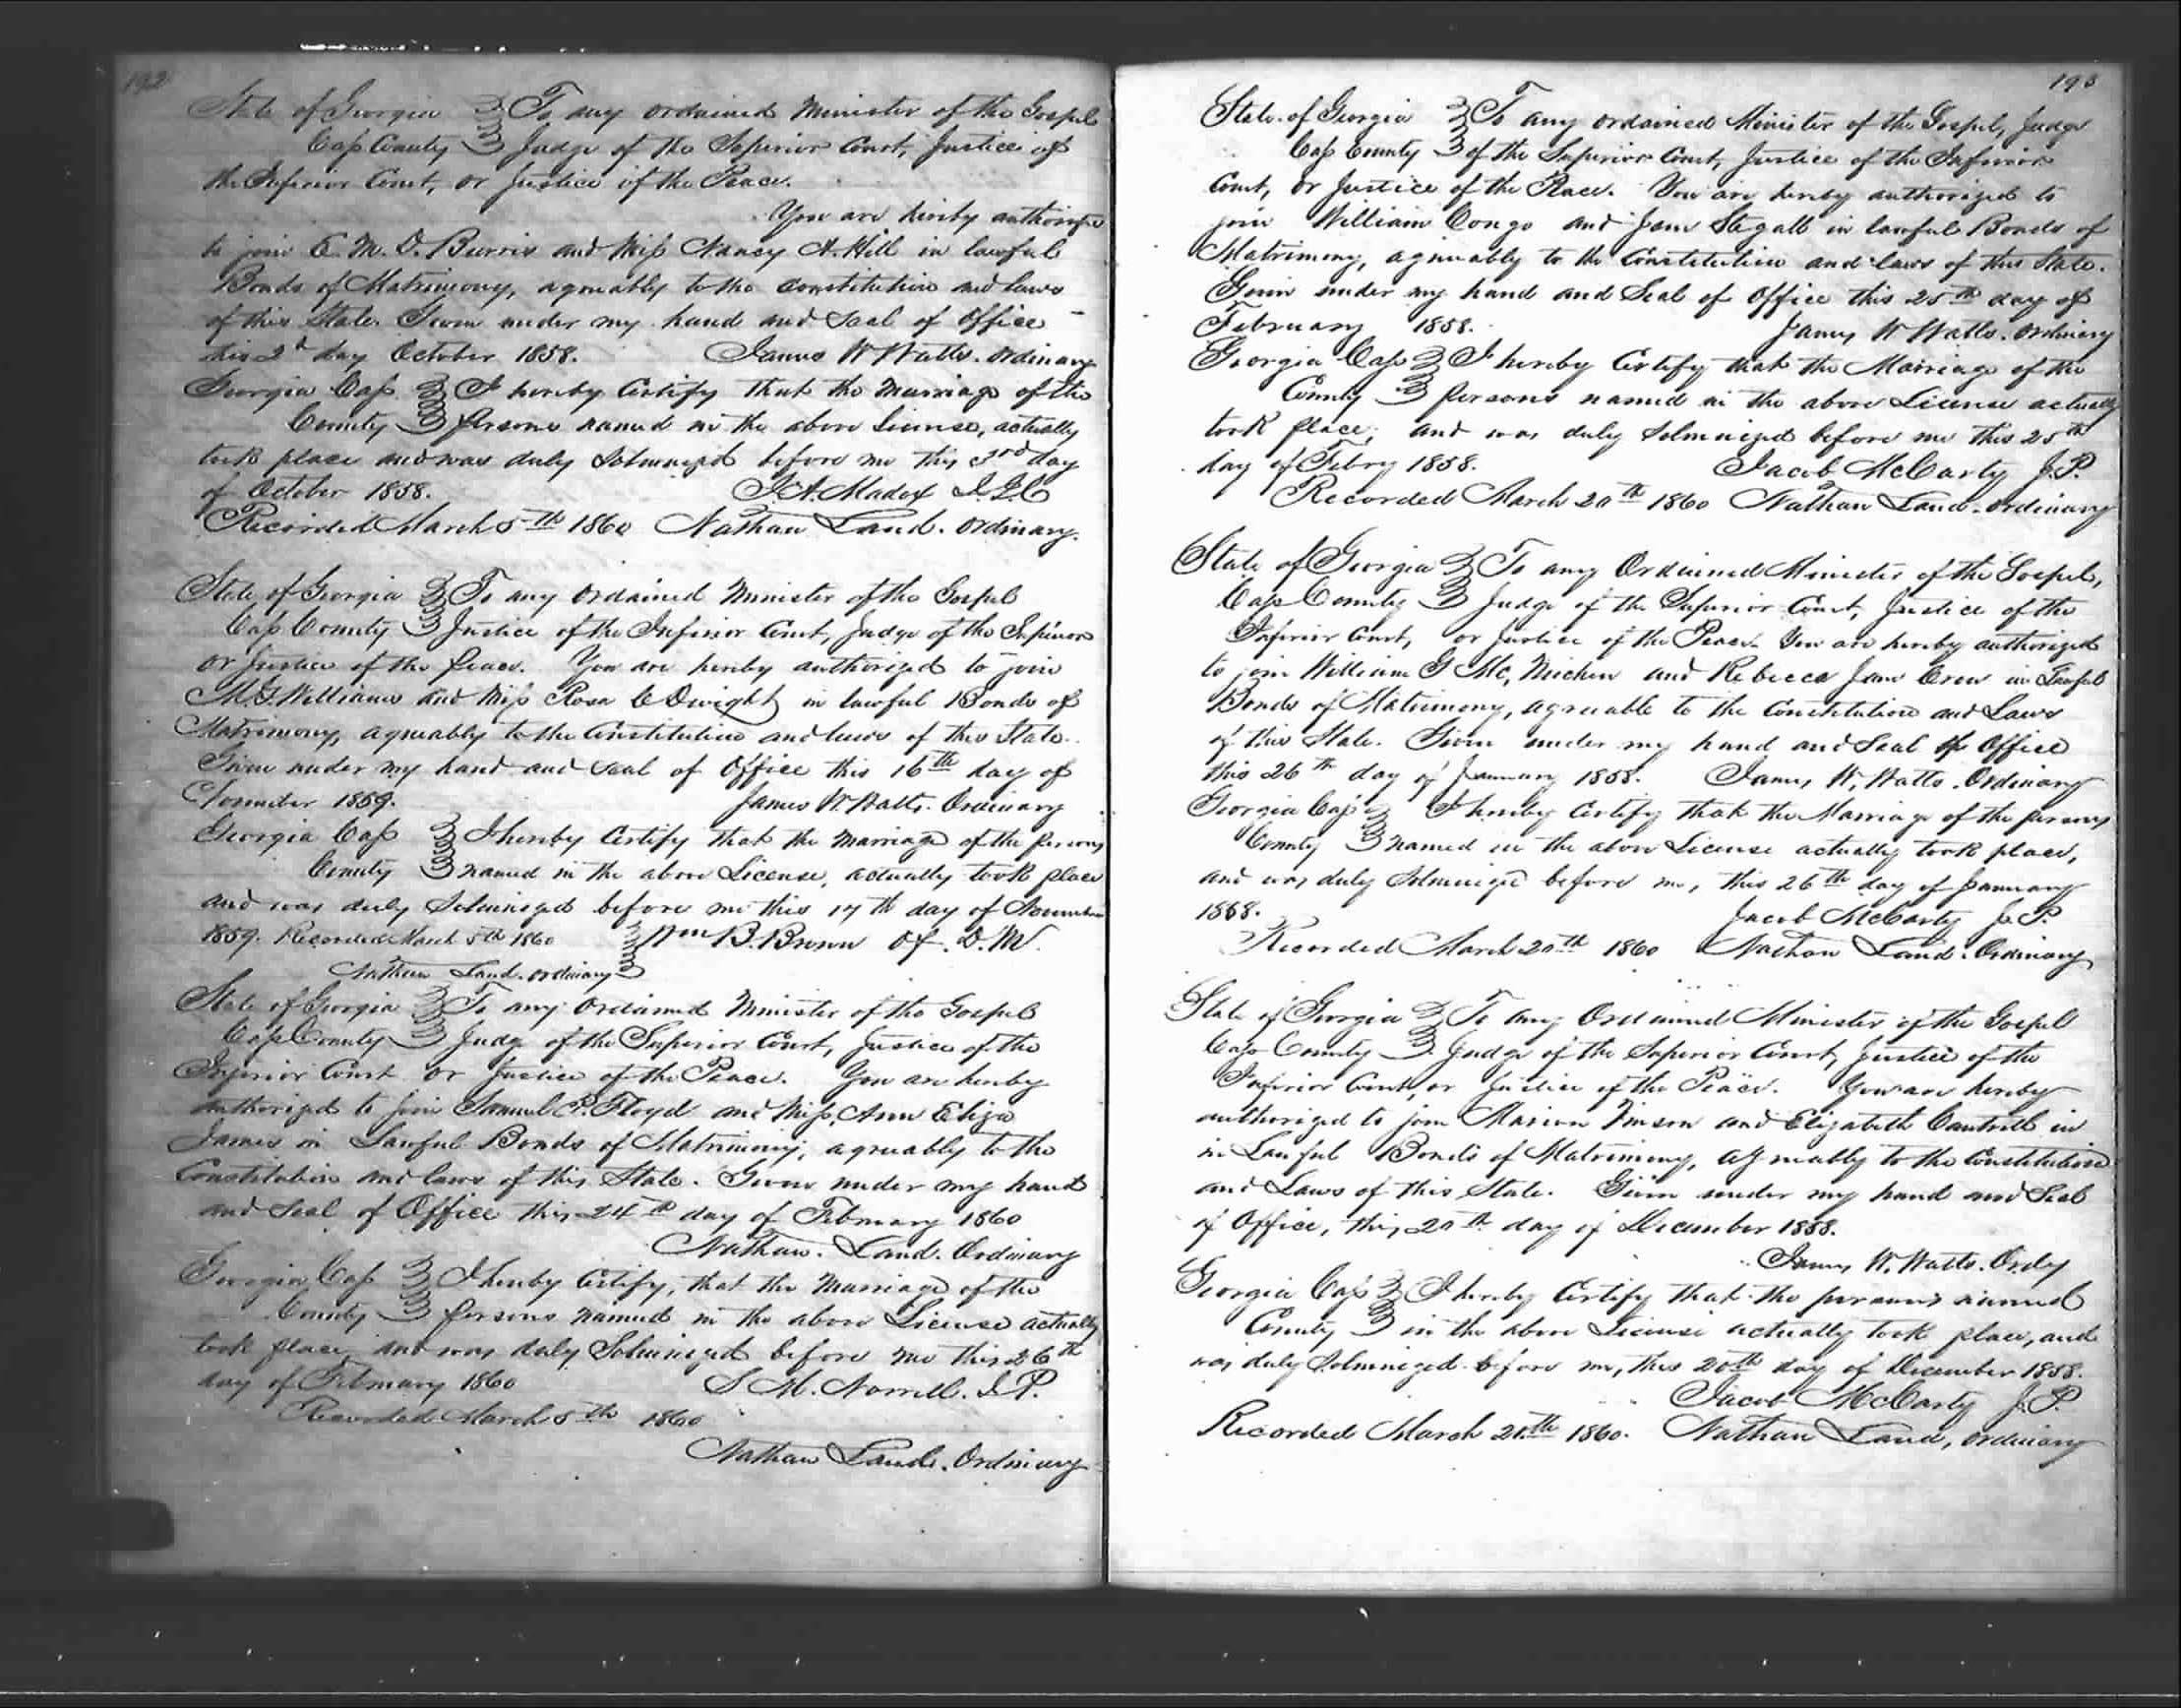 192
State of Georgia } To any ordained Minister of the Gospel
Cass County } Judge of the Superior Court, Justice of
the Inferior Court, or Justice of the Peace.
You are hereby authorized
to join E. M. D. Burris and Miss Nancy A. Hill in lawful
Bonds of Matrimony, agreeably to the Constitution and Laws
of this State. Given under my hand and Seal of Office
this 2d day October 1858. James W Watts. Ordinary
Georgia Cass } I hereby Certify that the Marriage of the
County } persons named in the above License, actually
took place and was duly Solemnized before me this 3rd day
of October 1858. J. A. Madox J.I.C
Recorded March 5th 1860 Nathan Land. Ordinary.
State of Georgia } To any Ordained Minister of the Gospel
Cass County } Justice of the Inferior Court, Judge of the Superior
or Justice of the Peace. You are hereby authorized to join
M. G. Williams and Miss Rosa C Dwight in lawful Bonds of
Matrimony, agreeably to the Constitution and laws of this State.
Given under my hand and seal of Office this 16th day of
November 1859. James W. Watts. Ordinary
Georgia Cass } I hereby Certify that the Marriage of the persons
County } named in the above License, actually took place
and was duly Solemnized before me this 17th day of November
1859. Recorded March 5th 1860 } Wm B. Brown
Nathan Land. Ordinary }
State of Georgia } To any Ordained Minister of the Gospel
Cass County } Judge of the Superior Court, Justice of the
Inferior Court or Justice of the Peace. You are hereby
authorized to join Samuel P. Floyd and Miss Ann Eliza
James in Lawful Bonds of Matrimony, agreeably to the
Constitution and laws of this State. Given under my hand
and Seal of Office this 24th day of February 1860
Nathan. Land. Ordinary
Georgia Cass } I hereby Certify, that the Marriage of the
County } persons named in the above License actually
took place and was duly Solemnized before me this 26th
day of February 1860 S M. Norrell. J.P.
Recorded March 5th 1860
Nathan Land. Ordinary
193
State of Georgia } To any ordained Minister of the Gospel, Judge
Cass County } of the Superior Court, Justice of the Inferior
Court, or Justice of the Peace. You are hereby authorized to
join William Congo and Jane Stegall in lawful Bonds of
Matrimony, agreeably to the Constitution and laws of this State.
Given under my hand and Seal of Office this 25th day of
February 1858. James W Watts. Ordinary
Georgia Cass } I hereby Certify that the Marriage of the
County } persons named in the above License actually
took place, and was duly Solemnized before me this 25th
day of Febry 1858. Jacob McCarty J.P.
Recorded March 20th 1860 Nathan Land. Ordinary
State of Georgia } To any Ordained Minister of the Gospel,
Cass County } Judge of the Superior Court, Justice of the
Inferior Court, or Justice of the Peace. You are hereby authorized
to join William G Mc,Michen and Rebecca Jane Crow in Lawful
Bonds of Matrimony, agreeable to the Constitution and Laws
of this State. Given under my hand and Seal of Office
this 26th day of January 1858. James W. Watts. Ordinary
Georgia Cass } I hereby Certify that the Marriage of the persons
County } named in the above License actually took place,
and was duly Solemnized before me, this 26th day of January
1858. Jacob McCarty J.P.
Recorded March 20th 1860 Nathan Land. Ordinary
State of Georgia } To any Ordained Minister of the Gospel
Cass County } Judge of the Superior Court, Justice of the
Inferior Court, or Justice of the Peace. You are hereby
authorized to join Marion Vinson and Elizabeth Cantrell in
in Lawful Bonds of Matrimony, agreeably to the Constitution
and Laws of this State. Given under my hand and Seal
of Office, this 20th day of December 1858.
James W. Watts. Ordy
Georgia Cass } I hereby Certify that the persons named
County } in the above License actually took place, and
was duly Solemnized before me, this 20th day of December 1858.
Jacob McCarty J.P.
Recorded March 20th 1860. Nathan Land, Ordinary